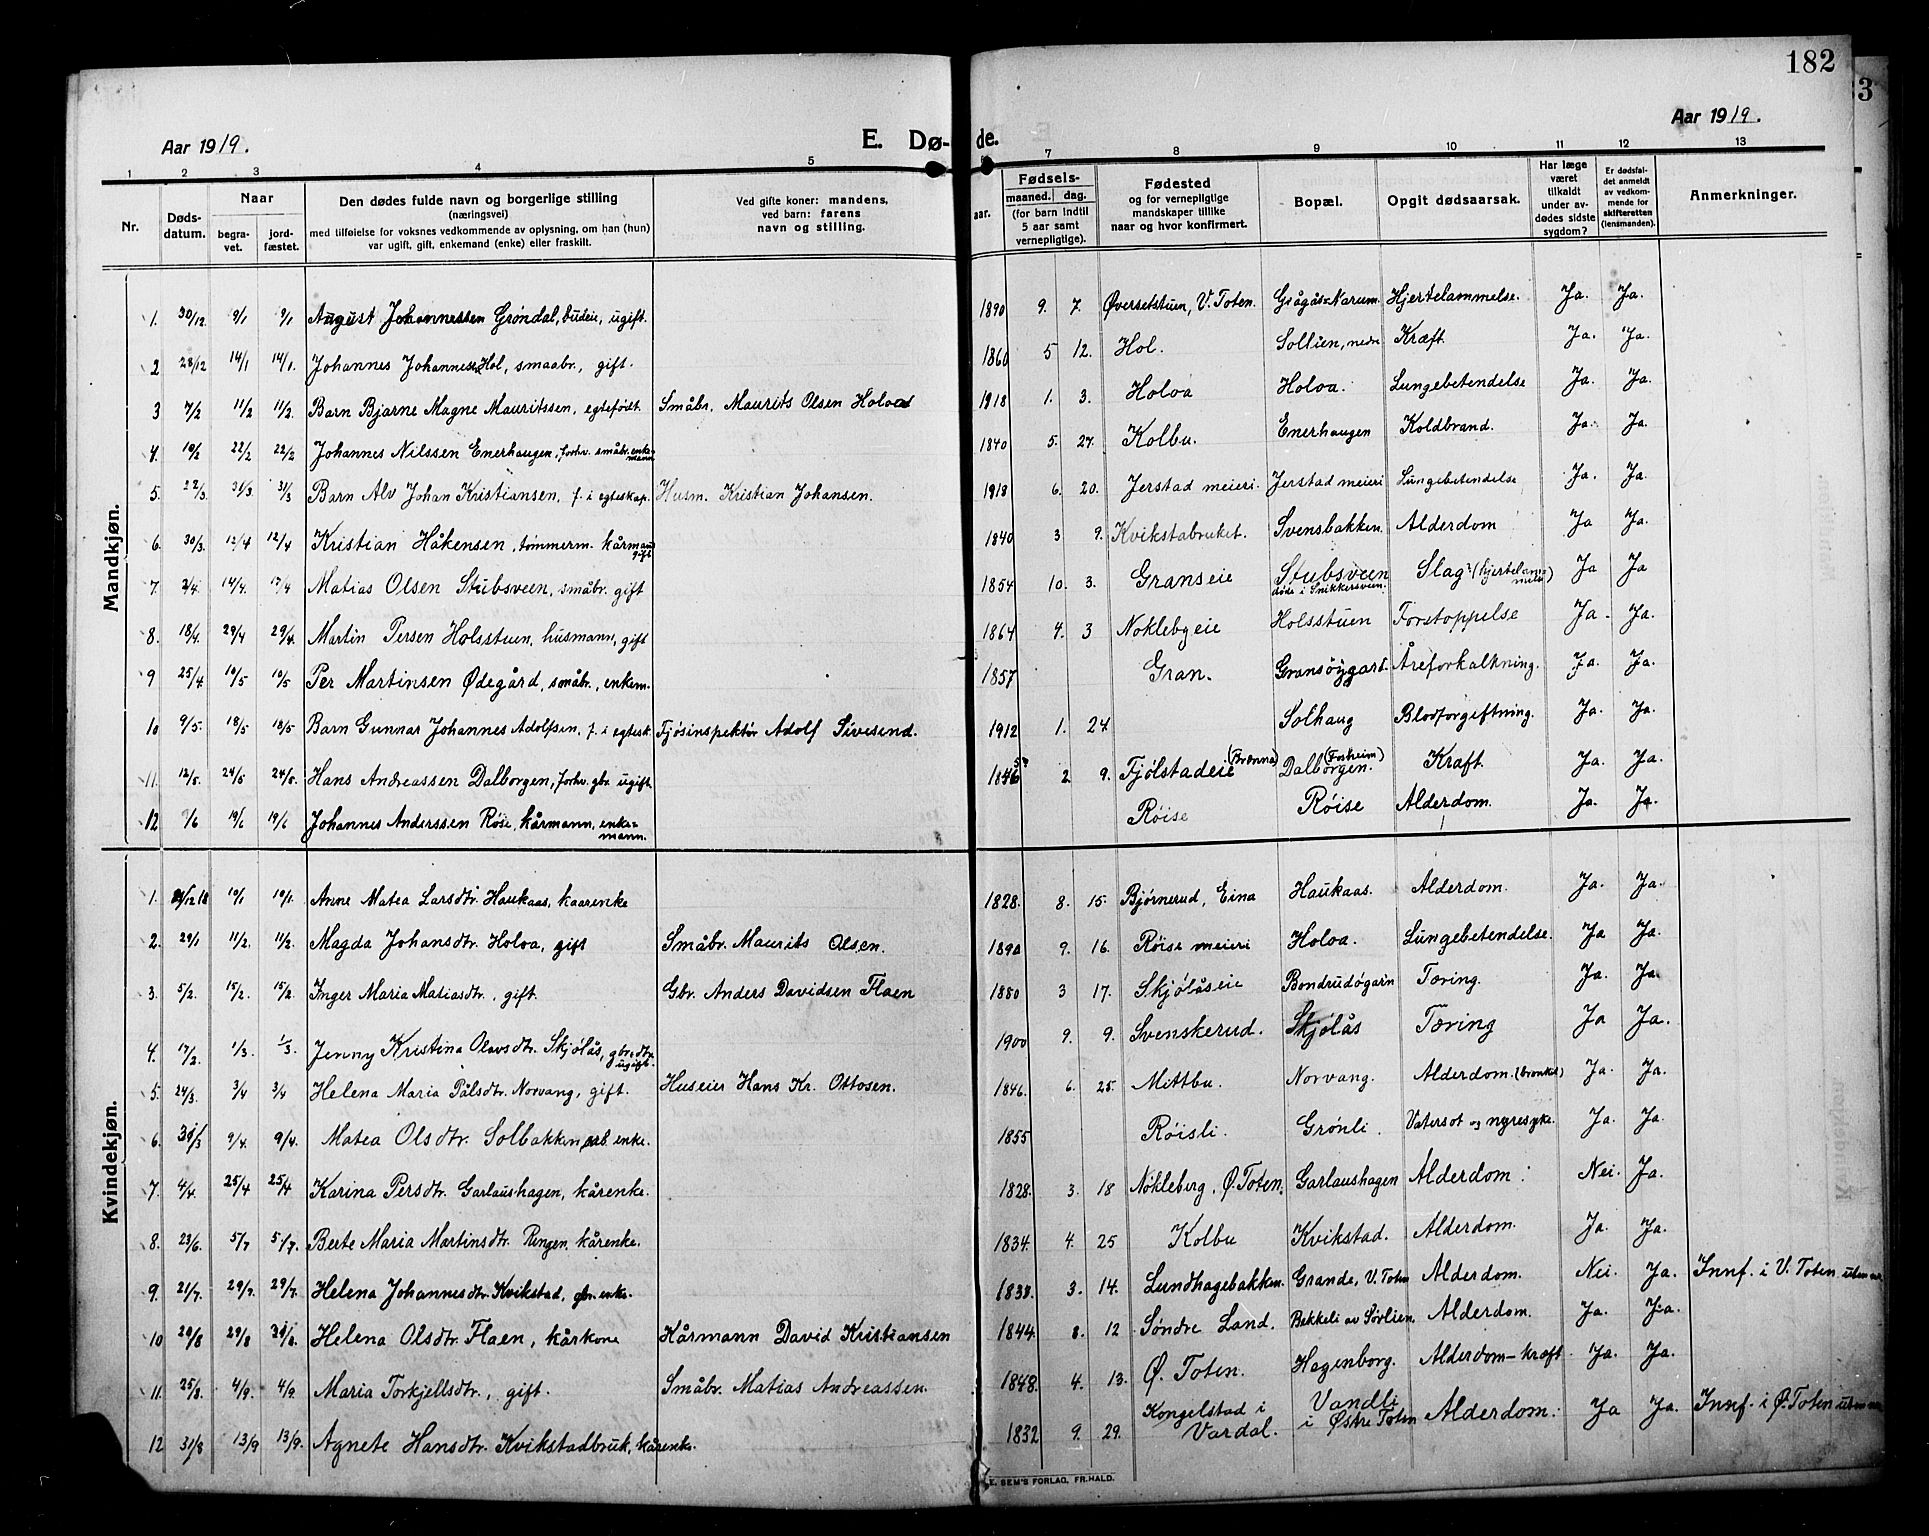 182
3
Aar 1919.
E. Dø-
de.
Aar 1919.
1 2 3 4 5 7 8 9 10 11 12 13
Nr.
Døds-
datum.
Naar
begra-
vet.
jord-
fæstet.
Den dødes fulde navn og borgerlige stilling
(næringsvei)
med tilføielse for voksnes vedkommende av oplysning, om han (hun)
var ugift, gift, enkemand (enke) eller fraskilt.
Ved gifte koner: mandens,
ved barn: farens
navn og stilling.
aar.
Fødsels-
maaned. dag.
(for barn indtil
5 aar samt
vernepligtige).
Fødested
og for vernepligtige
mandskaper tillike
naar og hvor konfirmert.
Bopæl.
Opgit dødsaarsak.
Har læge
været
tilkaldt
under av-
dødes sidste
sygdom?
Er dødsfal-
det anmeldt
av vedkom-
mende for
skifteretten
(lensmanden).
Anmerkninger.
Mandkjøn.
1. 30/12 9/1 9/1 August Johannessen Grøndal, budeie, ugift. 1890 9. 7. Øversetstuen, V. Toten. Grågås-Narum. Hjertelammelse. Ja. Ja.
2 28/12 14/1 14/1. Johannes Johannesen Hol, smaabr., gift. 1860 5 12. Hol. Sollien, nedre Kræft. Ja. Ja.
3 7/2 11/2 11/2. Barn Bjarne Magne Mauritssen, egtefødt. Småbr. Maurits Olsen Holoa 1918 1. 3. Holoa Holoa. Lungebetendelse Ja. Ja.
4. 10/2 22/2 22/2 Johannes Nilssen Enerhaugen, forhv. småbr. enke-
mann 1840 5. 27. Kolbu. Enerhaugen Koldbrand. Ja. Ja.
5. 22/3. 31/3. 31/3 Barn Alv Johan Kristiansen, f. i egteskap. Husm. Kristian Johansen. 1918 6. 20. Jerstad meieri. Jerstad meieri Lungebetendelse Ja. Ja.
6. 30/3. 12/4 12/4 Kristian Håkensen, tømmerm. kårmann
gift 1840 3 9. Kvikstabruket. Svensbakken. Alderdom Ja Ja.
7. 2/4. 14/4. 17/4 Matias Olsen Stubsveen, småbr. gift 1854 10. 3. Granseie Stubsveen
døde i Snikkersveen. Slag (hjertelam-
melse) Ja Ja
8. 18/4. 29/4 29/4. Martin Persen Holsstuen, husmann, gift 1864 4. 3 Noklebyeie Holsstuen Forstoppelse Ja. Ja.
9 25/4 10/5 10/5 Per Martinsen Ødegård, småbr., enkem. 1857 Gran. Gransøygart. Åreforkalkning. Ja. Ja.
10 9/5. 18/5 18/5 Barn Gunnar Johannes Adolfsen, f. i egtesk. Fjøsinspektør Adolf Sivesind. 1912 1. 24 Solhaug Blodforgiftning. Ja. Ja.
11. 12/5. 24/5 24/5. Hans Andreassen Dalborgen, forhv. gbr. ugift. 1846 2 9. Fjølstadeie (Brenna) Dalborgen. (Forsheim) Kræft. Ja. Ja.
12 1/6 19/6 19/6 Johannes Anderssen Røise, kårmann, enke-
mann. Røise Røise Alderdom. Ja. Ja.
Kvindekjøn.
1. 21/12 18 10/1 10/1. Anne Matea Larsdtr Haukaas, kaarenke 1828. 8. 15. Bjørnerud, Eina Haukaas. Alderdom. Ja. Ja.
2. 29/1 11/2. 11/2. Magda Johansdtr. Holoa, gift Småbr. Maurits Olsen. 1890 9. 16. Røise meieri Holoa. Lungebetendelse. Ja Ja.
3. 5/2. 15/2. 15/2. Inger Maria Matiasdtr., gift. Gbr. Anders Davidsen Flaen 1880 3 17. Skjølåseie Bondrudøgarn Tæring. Ja. Ja.
4. 17/2. 1/3. 1/3. Jenny Kristina Olavsdtr. Skjølås, gbr.dtr.
ugift. 1900 9. 9. Svenskerud. Skjølås Tæring Ja Ja.
5. 24/3. 3/4 3/4 Helena Maria Pålsdtr. Norvang, gift. Huseier Hans Kr. Ottosen. 1846. 6. 25. Mittbu. Norvang. Alderdom. (bronkit) Ja. Ja.
6. 31/3 9/4. 9/4. Matea Olsdtr. Solbakken, arb. enke. 1855 Røisli. Grønli. Vatersot og nyresyke. Ja. Ja.
7. 4/4. 25/4 25/4 Karina Persdtr. Garlaushagen, kårenke. 1828. 3. 18 Nøkleberg, Ø. Toten. Garlaushagen Alderdom. Nei. Ja.
8. 23/6. 5/7 5/7. Berte Maria Martinsdtr. Ringen, kårenke. 1834. 4. 25 Kolbu Kvikstad. Alderdom. Ja. Ja.
9. 21/7. 29/7. 29/7. Helena Johannesdtr. Kvikstad, gbr. enke. 1838. 3. 14. Lundhagebakken. Grande, V. Toten Alderdom. Nei. Ja. Innf. i V. Toten uten nr.
10 29/8 29/8 29/8. Helena Olsdtr. Flaen, kårkone Kårmann David Kristiansen 1844. 8. 12 Søndre Land. Bekkeli av Sørlien. Alderdom. Ja. Ja.
11. 25/8. 4/9. 4/9. Maria Torkjellsdtr., gift. Småbr. Matias Andreassen. 1848. 4. 13. Ø. Toten. Hagenborg. Alderdom - kræft. Ja. Ja.
12 31/8 13/9 13/9. Agnete Hansdtr. Kvikstadbruk, kårenke. 1832 9. 29. Kongelstad i
Vardal. Vandli
i Østre Toten Alderdom. Ja Ja. Innf. i Ø. Toten uten nr.
E. SEM'S FORLAG, FR.HALD.